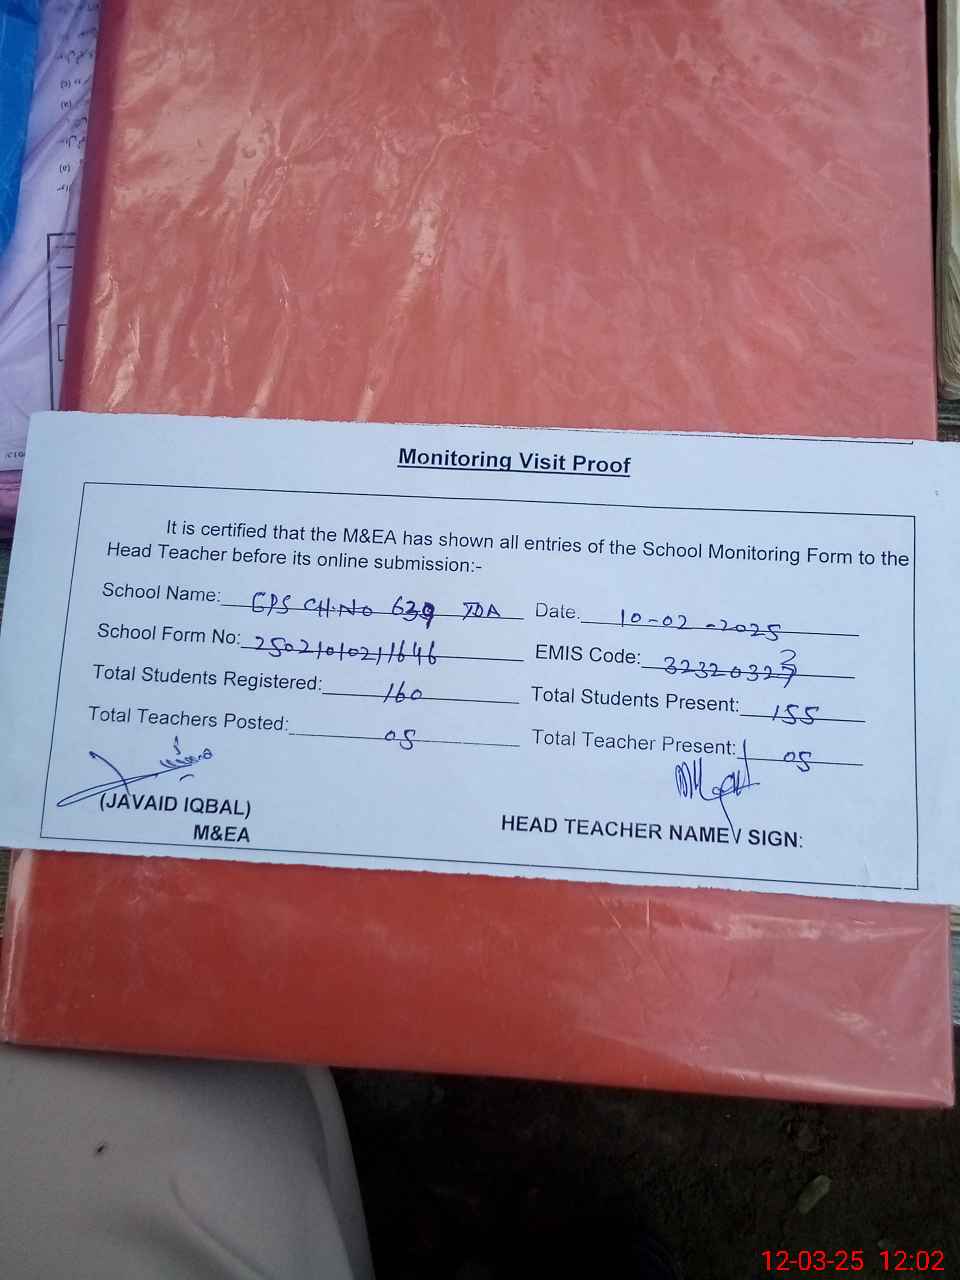 Monitoring Visit Proof
It is certified that the M&EA has shown all entries of the School Monitoring Form to the
Head Teacher before its online submission:-
School Name: GPS CH.No 639 TDA Date. 10-02-2025
School Form No: 25021010211646 EMIS Code: 32320327 3
Total Students Registered: 160 Total Students Present: 155
Total Teachers Posted: 05 Total Teacher Present: 05
(JAVAID IQBAL)
M&EA
HEAD TEACHER NAME/ SIGN:
12-03-25 12:02